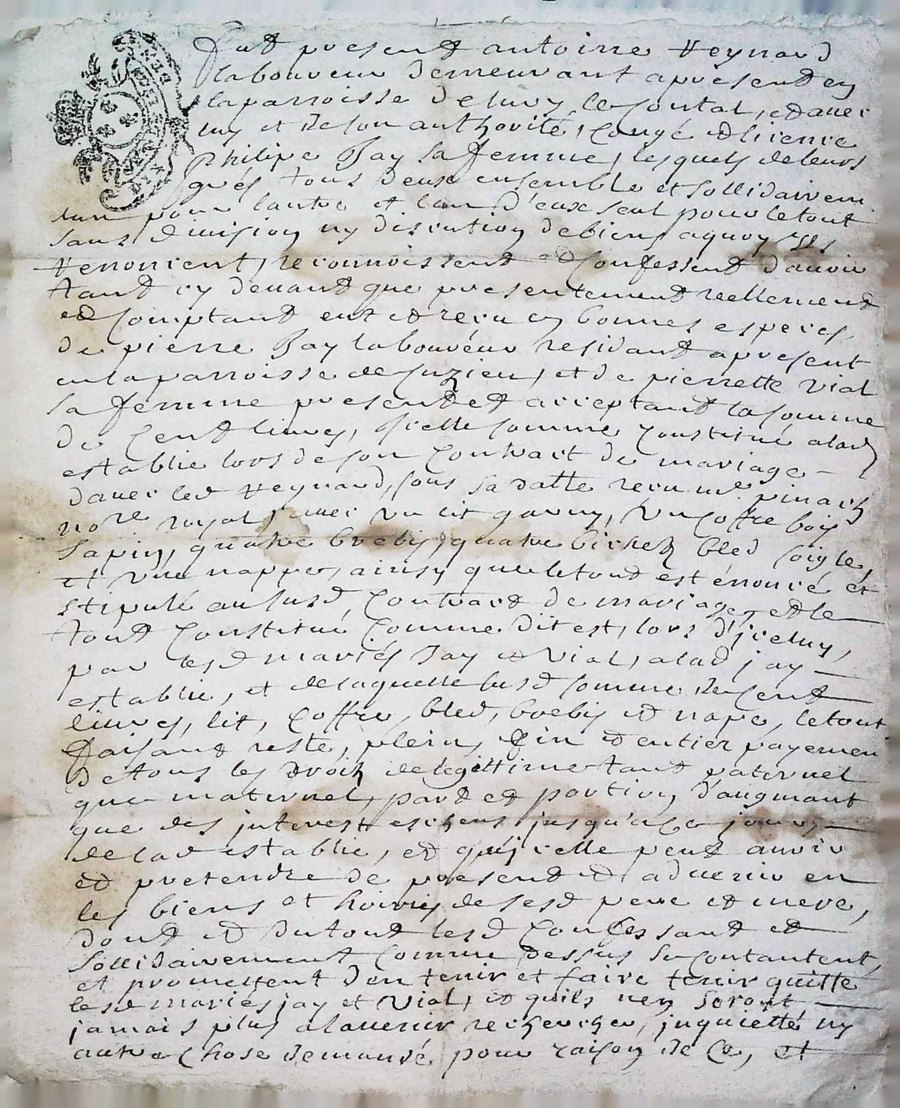 Fut present antoine Heynard
laboureur demeurant apresent en
la parroisse de lury le contal, et avec
luy et de son authorité, congé et licence
Philipe Jay sa femme, lesquels de leurs
grés, tous deux ensemble et sollidairem
lun pour lautre et lun d'eux seul pour le tout
sans division ny discution de biens aquoy ils
renoncent, reconnoissent et Confessent d'avoir
tant cy devant que presentement reellement
et Comptant eut et receu en bonnes especes,
de pierre Jay laboureur residant apresent
en la parroisse de suzieu, et de pierrette vial
sa femme present et acceptant la somme
de Cent livres, icelle somme constitué a lad
establie lors de son Contract de mariage
avec led Heynard, sous sa datte receu me pinach
nore royal, avec un lit garny, un coffre bois
sapin, quatre brebis, quatre bichez bled soigle,
et une nappe, ainsy que le tout est énoncé et
stipulé aususd Contract de mariage, et le
tout Constitué Comme dit est, lors d'iceluy,
par lesd mariés Jay et vial, alad jay
establie, et de laquelle susd somme de Cent
livres, lit, Coffre, bled, brebis et nape, le tout
faisant reste, plein, fin et entier payement
de tous les droiz de legittime tant paternel
que maternel, part et portion d'augmant
que des interest escheus jusqu'a ce jours
de lad establie, et qu'icelle peut avoir
et pretendre de present et advenir en
les biens et hoiries de sesd pere et mere,
dont et dutout lesd Confessant et
sollidairement comme dessus se contantent,
et promettent d'en tenir et faire tenir quitte
lesd mariés jay et vial, et quils nen seront
jamais plus a lavenir recherchés, inquietté ny
autre Chose demandé, pour raison de Ce, et